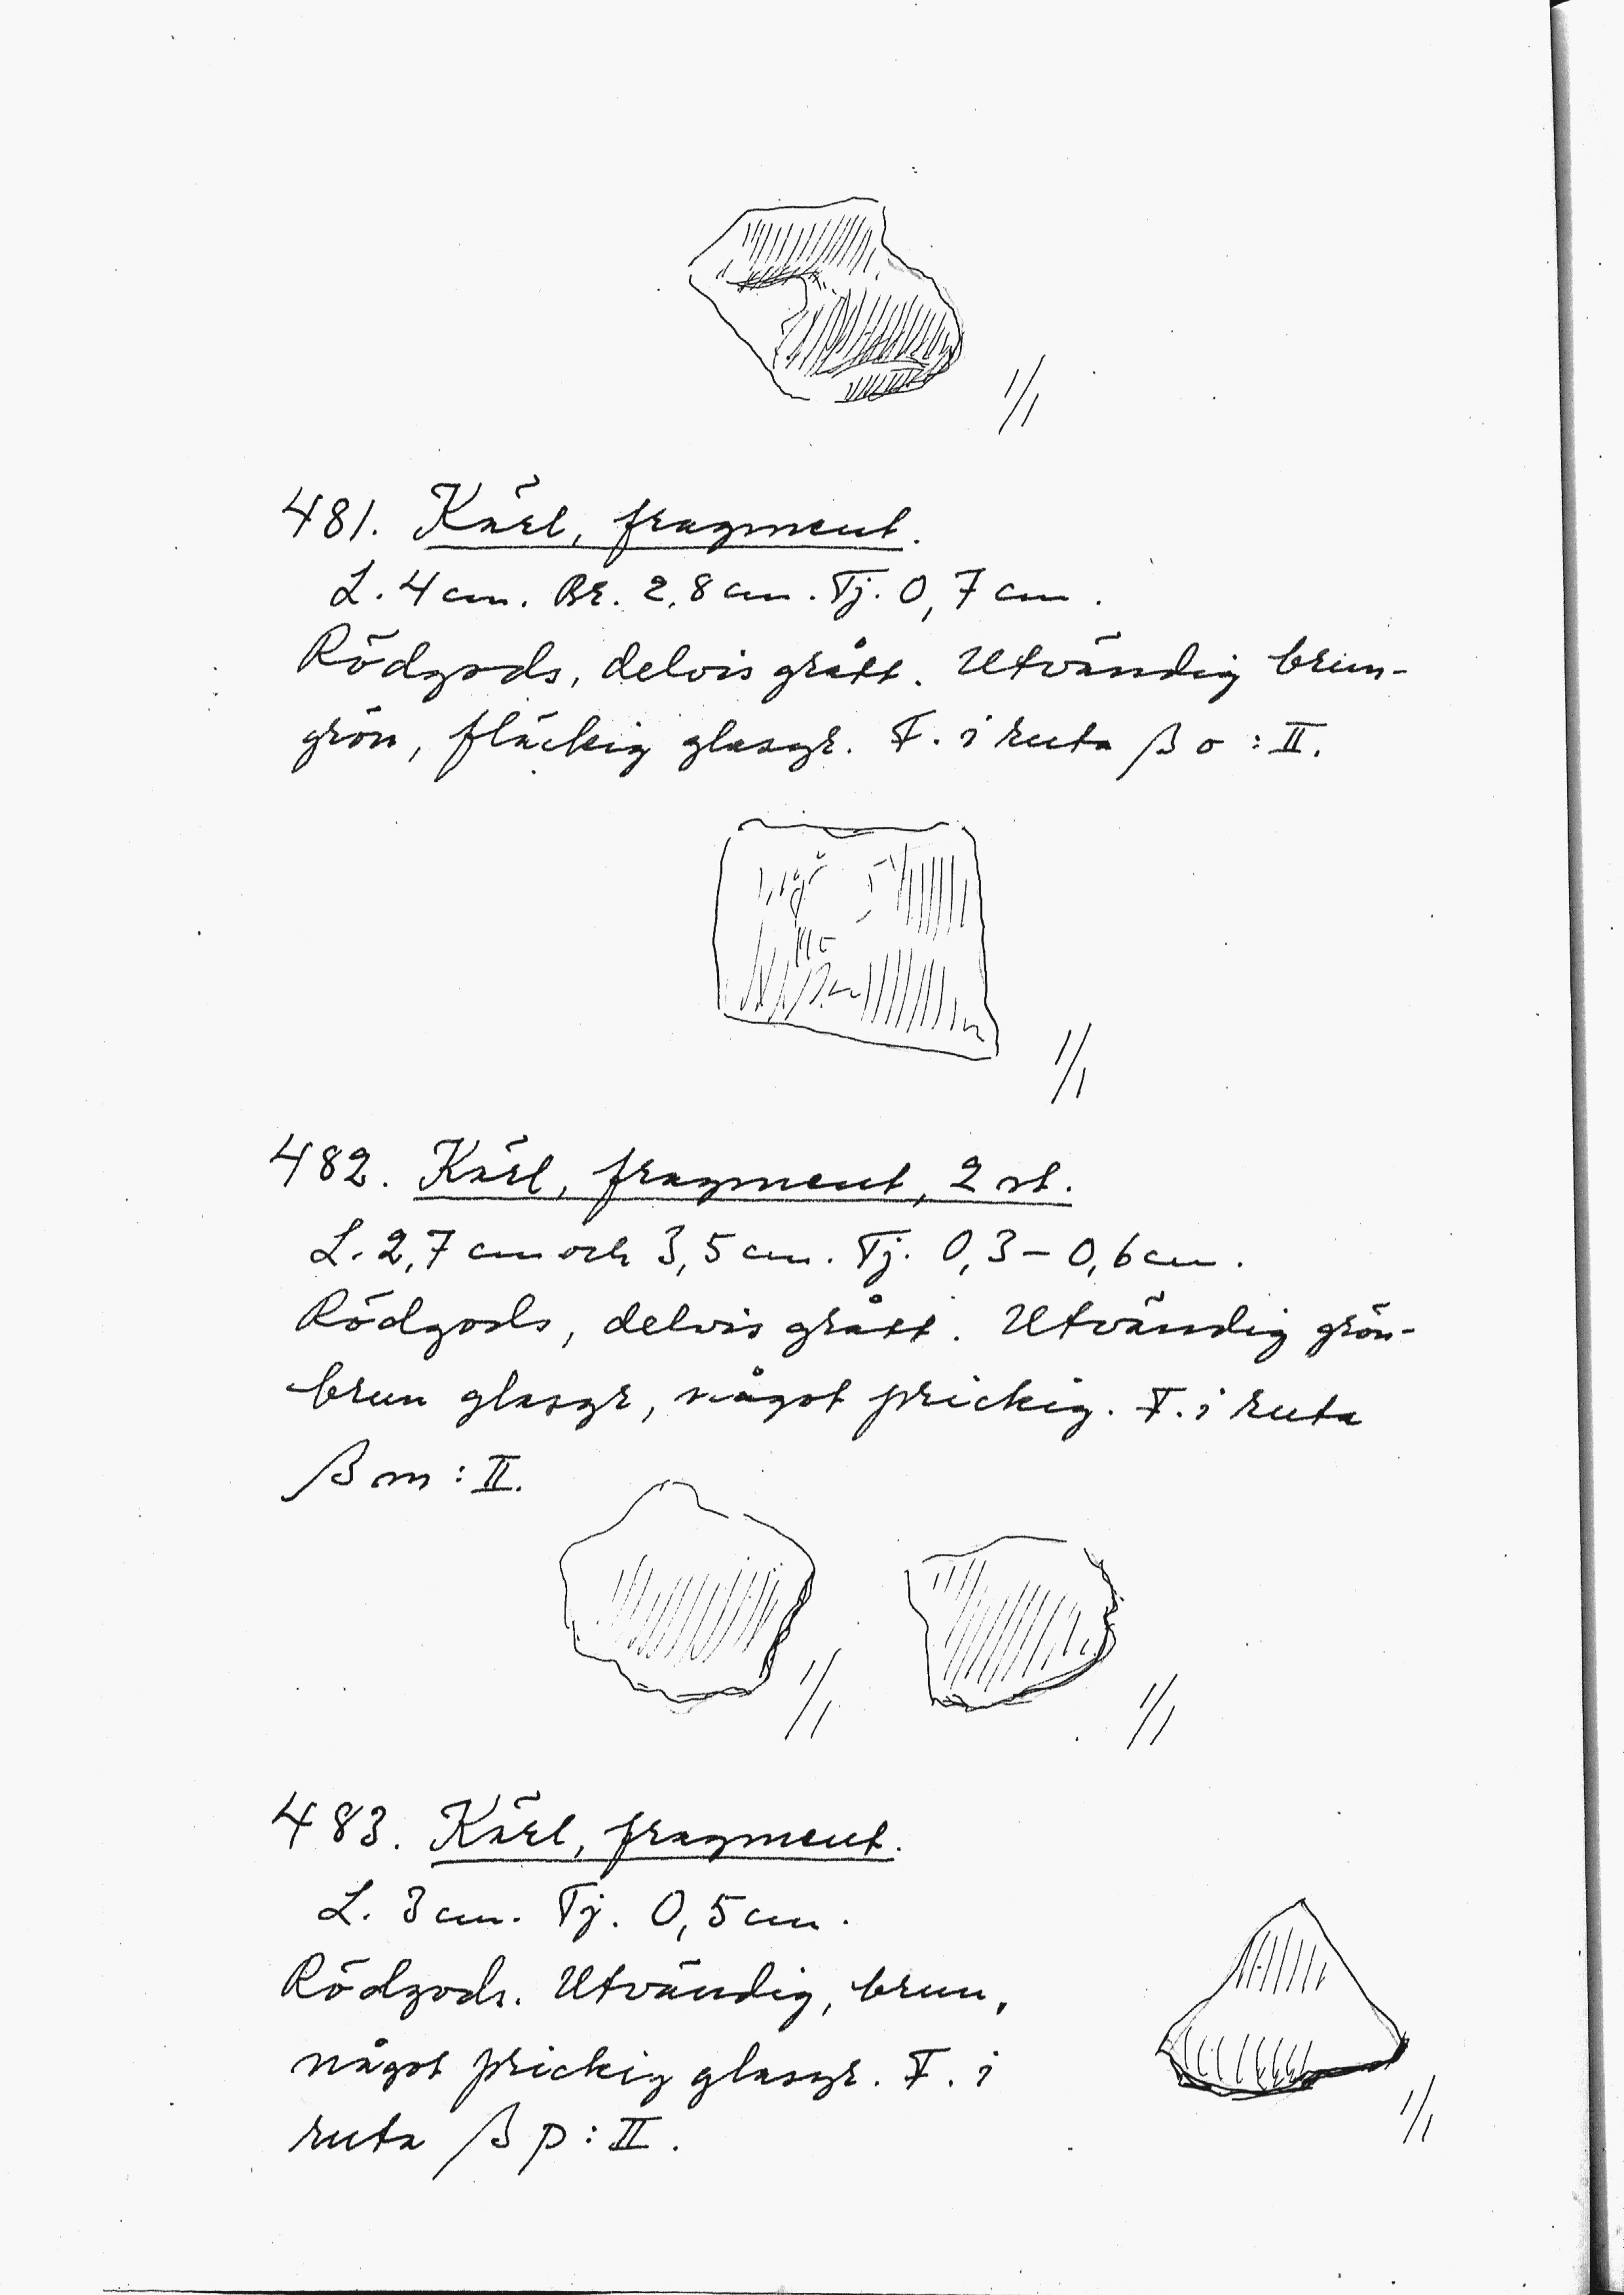 1/1
481. Kärl, fragment.
L. 4 cm. Br. 2,8 cm. Tj. 0,7 cm.
Rödgods, delvis grått. Utvändig brun-
grön, fläckig glasyr. F. i ruta β o : II.
1/1
482. Kärl, fragment, 2 st.
L. 2,7 cm och 3,5 cm. Tj. 0,3 – 0,6 cm.
Rödgods, delvis grått. Utvändig grön-
brun glasyr, något prickig. F. i ruta
β m : II.
1/1 1/1
483. Kärl, fragment.
L. 3 cm. Tj. 0,5 cm.
Rödgods. Utvändig, brun,
något prickig glasyr. F. i
ruta β p : II.
1/1